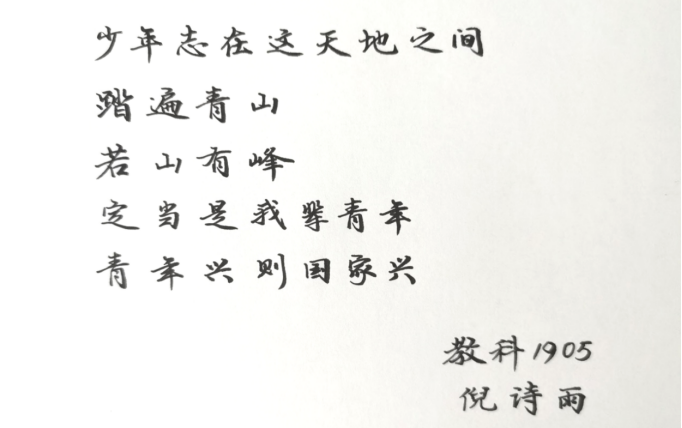 少年志在这天地之间
踏遍青山
若山有峰
定当是我辈青年
青年兴则国家兴
教科1905
倪诗雨